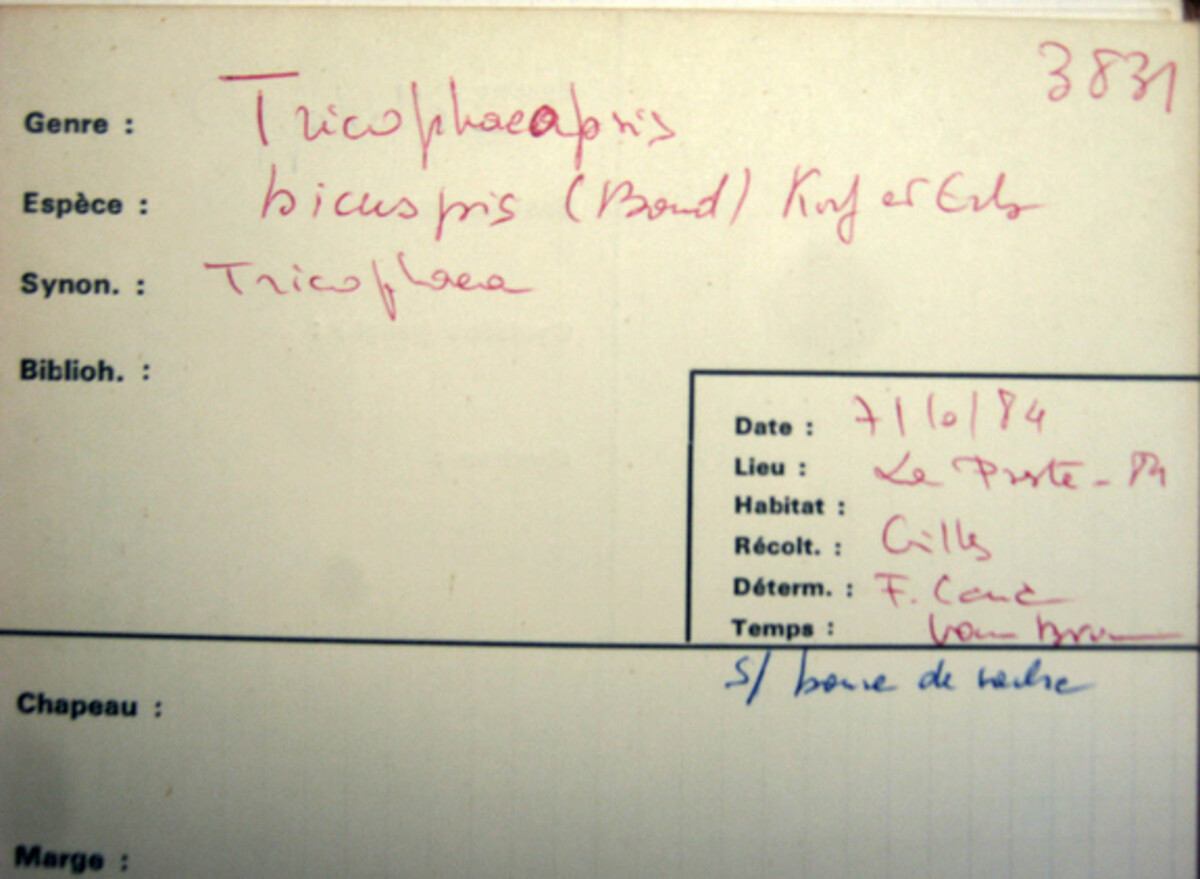 3831
Genre : Tricophaeopsis
Espèce : bicuspis (Boud) Korf et Erb
Synon. : Tricophaea
Biblioh. :
Date : 7/10/84
Lieu : La Preste -
Habitat :
Récolt. : Gilles
Déterm. : F. Cand
Temps : Van Brum
S/ bouse de vache
Chapeau :
Marge :